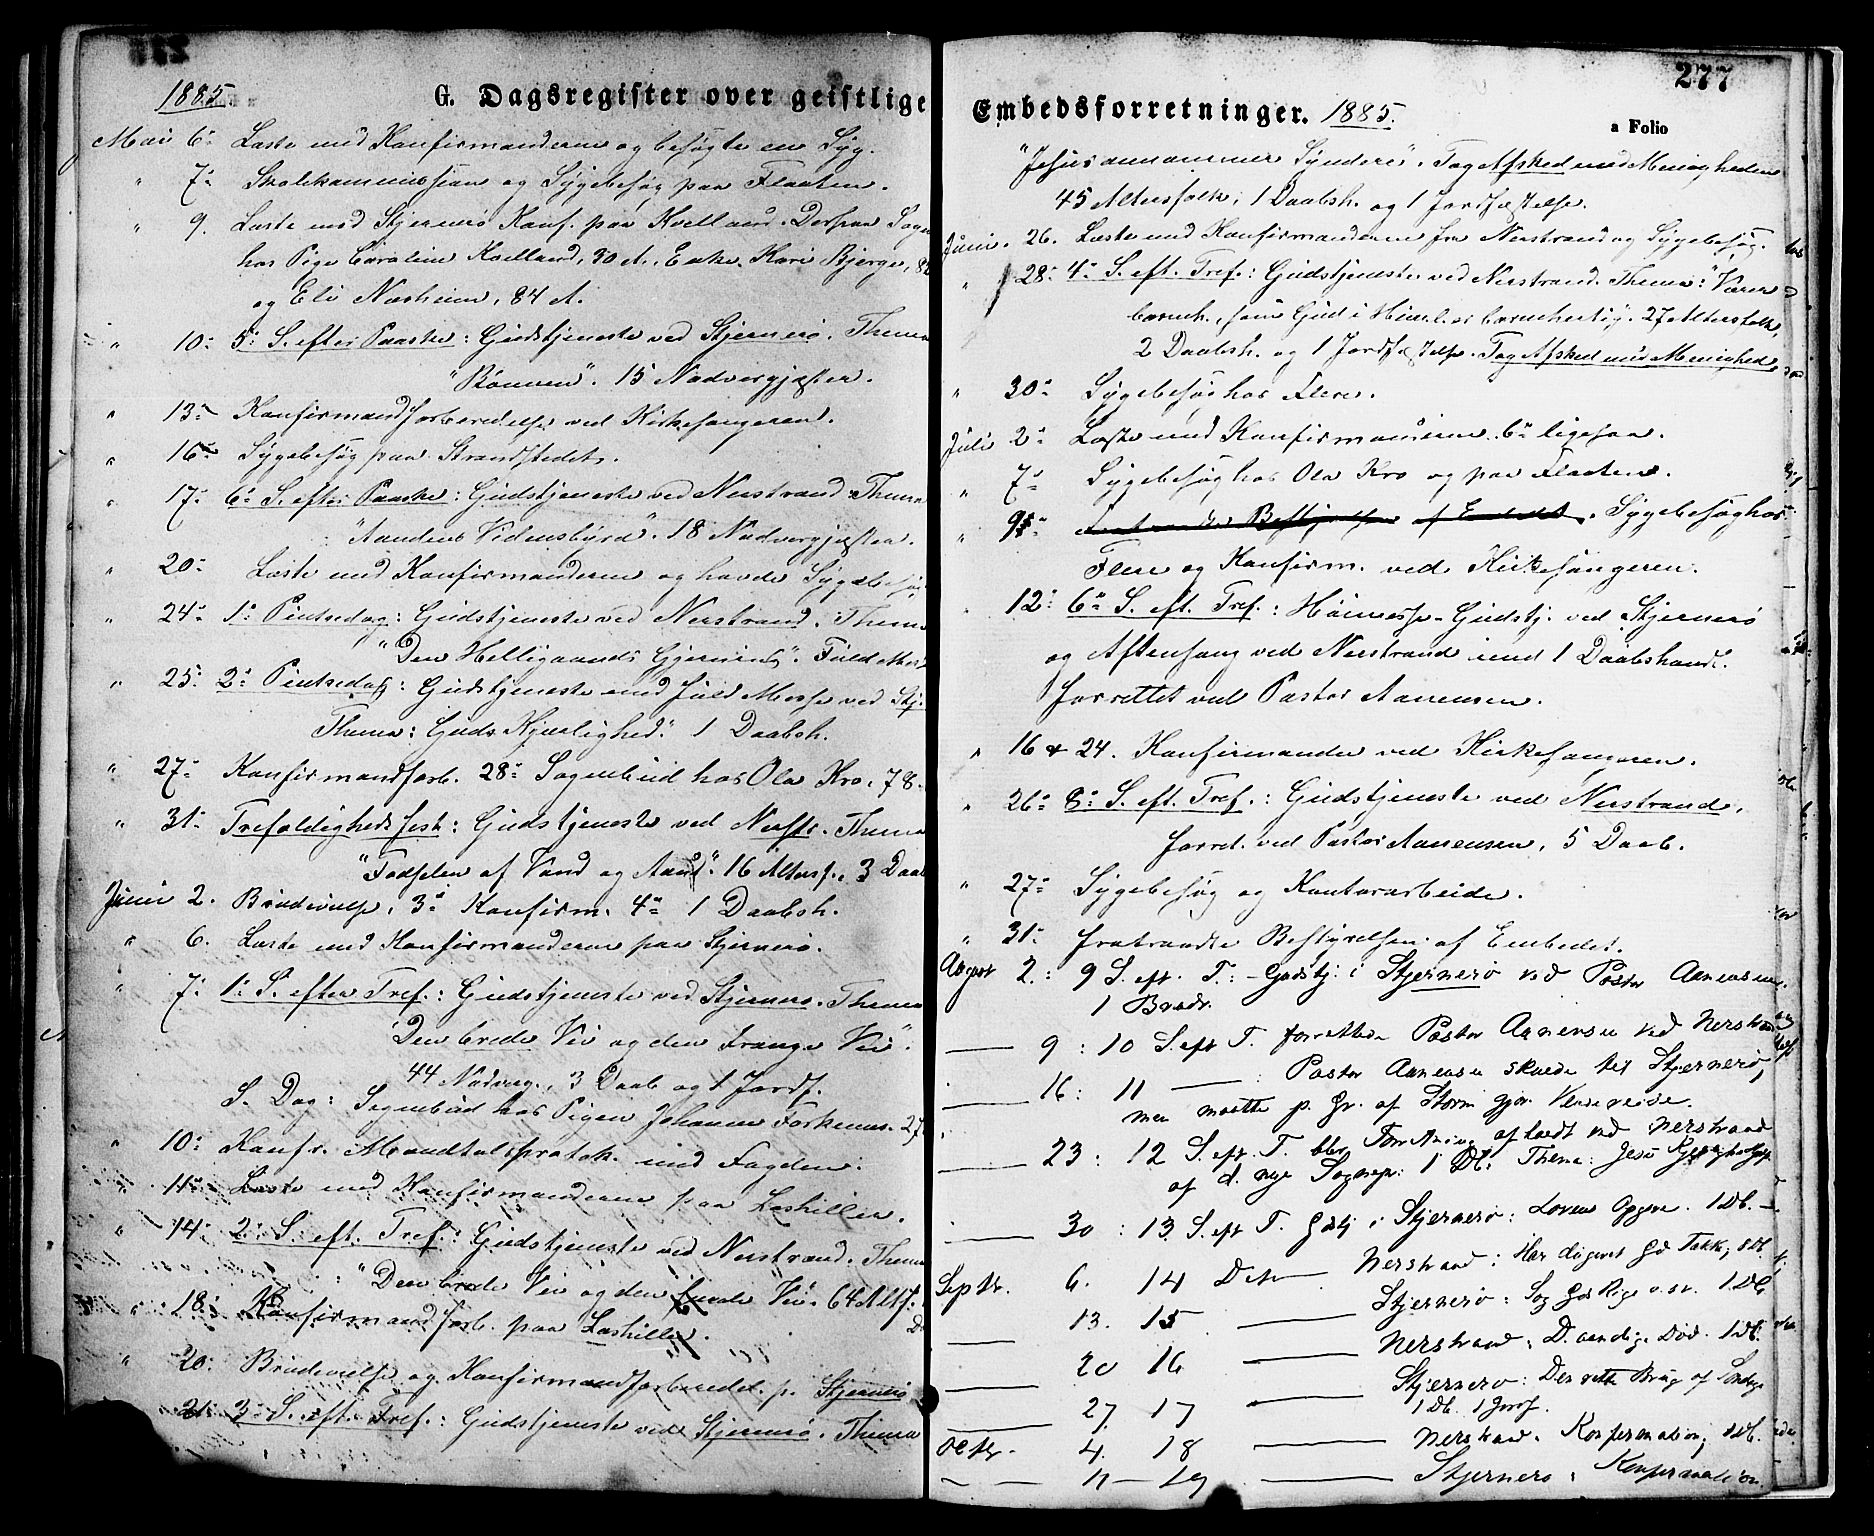 1885
G. Dagsregister over geistlige
Mai 6. Læste med Konfirmanderne og besøgte en Syg.
" 7. Skolekommission og Sygebesøg paa Flaaten.
" 9. Læste med Stjernerø Konf. paa Kvelland. Derpaa Sogne
hos Pige Caroline Kvelland, 30 A. Enke Kari Bjerge, 82
og Eli Næsheim, 84 A.
" 10. 5. S. efter Paaske: Gudstjeneste ved Stjernerø. Thema
"Bønnen". 15 Nadvergjæster.
" 13. Konfirmandforberedelse ved Kirkesangeren.
" 16. Sygebesøg paa Strandstedet.
" 17. 6. S. efter Paaske: Gudstjeneste ved Nerstrand. Thema
"Aandens Vidensbyrd". 18 Nadvergjæster.
" 20. Læste med Konfirmanderne og havde Sygebesøg
" 24. 1. Pintsedag: Gudstjeneste ved Nerstrand. Thema
"Den Helligaands Gjerning". Fuld Messe
" 25. 2. Pintsedag: Gudstjeneste med fuld Messe ved Stj.
Thema: Guds Kjærlighed." 1 Daabsh.
" 27. Konfirmandforb. 28. Sognebud hos Ola Kro, 78.
" 31. Trefoldighedsfest: Gudstjeneste ved Nerstr. Thema
"Fødselen af Vand og Aand". 16 Altersf., 3 Daab
Juni 2. Brudevielse, 3. Konfirm. 4. 1 Daabsh.
" 6. Læste med Konfirmanderne paa Stjernerø.
" 7. 1. S. efter Tref.: Gudstjeneste ved Stjernerø. Thema
"Den brede Vei og den trange Vei".
44 Nadverg., 3 Daab og 1 Jordf.
S. Dag: Sognebud hos Pigen Johanne 27
" 10. Konfr. Mandtalsprotok. med Fogden.
" 11. Læste med Konfirmanderne paa Løshiller.
" 14. 2. S. eft. Tref.: Gudstjeneste ved Nerstrand. Thema
"Den brede Vei og den Vei. 64 Altf.
" 18. Konfirmandforb. paa Løshiller.
" 20. Brudevielse og Konfirmandforberedel. p. Stjernerø
21. 3. S. eft. Tref.: Gudstjeneste ved Stjernerø. Thema
277
Embedsforretninger. 1885.
a Folio
"Jesus annammer Syndere". Tog Afsked med Menigheden
45 Altersfolk, 1 Daabsh. og 1 Jordfæstelse.
Juni 26. Læste med Konfirmanderne fra Nerstrand og Sygebesøg.
" 28. 4. S. eft. Tref.: Gudstjeneste ved Nerstrand. Thema: "Værer
barmh., som Gud i Himl. er barmhertig. 27 Altersfolk,
2 Daabsh. og 1 Jordfæstelse. Tog Afsked med Menighed.
" 30. Sygebesøg hos Flere.
Juli 2. Læste med Konfirmanderne. 6. ligesaa.
" 7. Sygebesøg hos Ola Kro og paa Flaaten.
" 9. Fratraadte Bestyrelsen af Embedet. Sygebesøg hos
Flere og Konfirm. ved Kirkesangeren.
12. 6. S. eft. Tref.: Høimesse-Gudstj. ved Stjernerø
og Aftensang ved Nerstrand med 1 Daabshandl.
forrettet ved Pastor Aanensen.
" 16 & 24. Konfirmander ved Kirkesangeren.
" 26. 8. S. eft. Tref.: Gudstjeneste ved Nerstrand,
forret. ved Pastor Aanensen, 5 Daab.
" 27. Sygebesøg og Kontorarbeide.
" 31. fratraadte Bestyrelsen af Embedet.
August 2.: 9 S. eft. T.: Gudstj. i Stjernerø ved Pastor Aanensen.
1 Brudv.
— 9 : 10 S. eft T. forrettede Pastor Aanensen ved Nerstrand
— 16 : 11 — : Pastor Aanensen skulde til Stjernerø,
men maatte p. Gr. af Storm gjør Vendereise.
— 23 : 12 S. eft. T. blev Forretning afholdt ved Nerstrand
af d. nye Sognepr: 1 Db: Thema: Jesu
— 30 : 13 S. eft T. Gdstj i Stjernerø: Lovens Opgave. 1 Db.
Septbr. 6. 14 Do — Nerstrand: Har digivet Gd Takk; Db
— 13. 15 — Stjernerø: Søg Gds Rige o.s.v. 1 Db
— 20 16 — Nerstrand: D. aandige Død. 1 Db.
— 27. 17 — Stjernerø: Den rette Brug af Søndage
1 Db. 1 Jordf.
Octbr. 4. 18 — Nerstrand. Konfirmation; Db.
— 11 — 19 — Stjernerø: Konfirmation